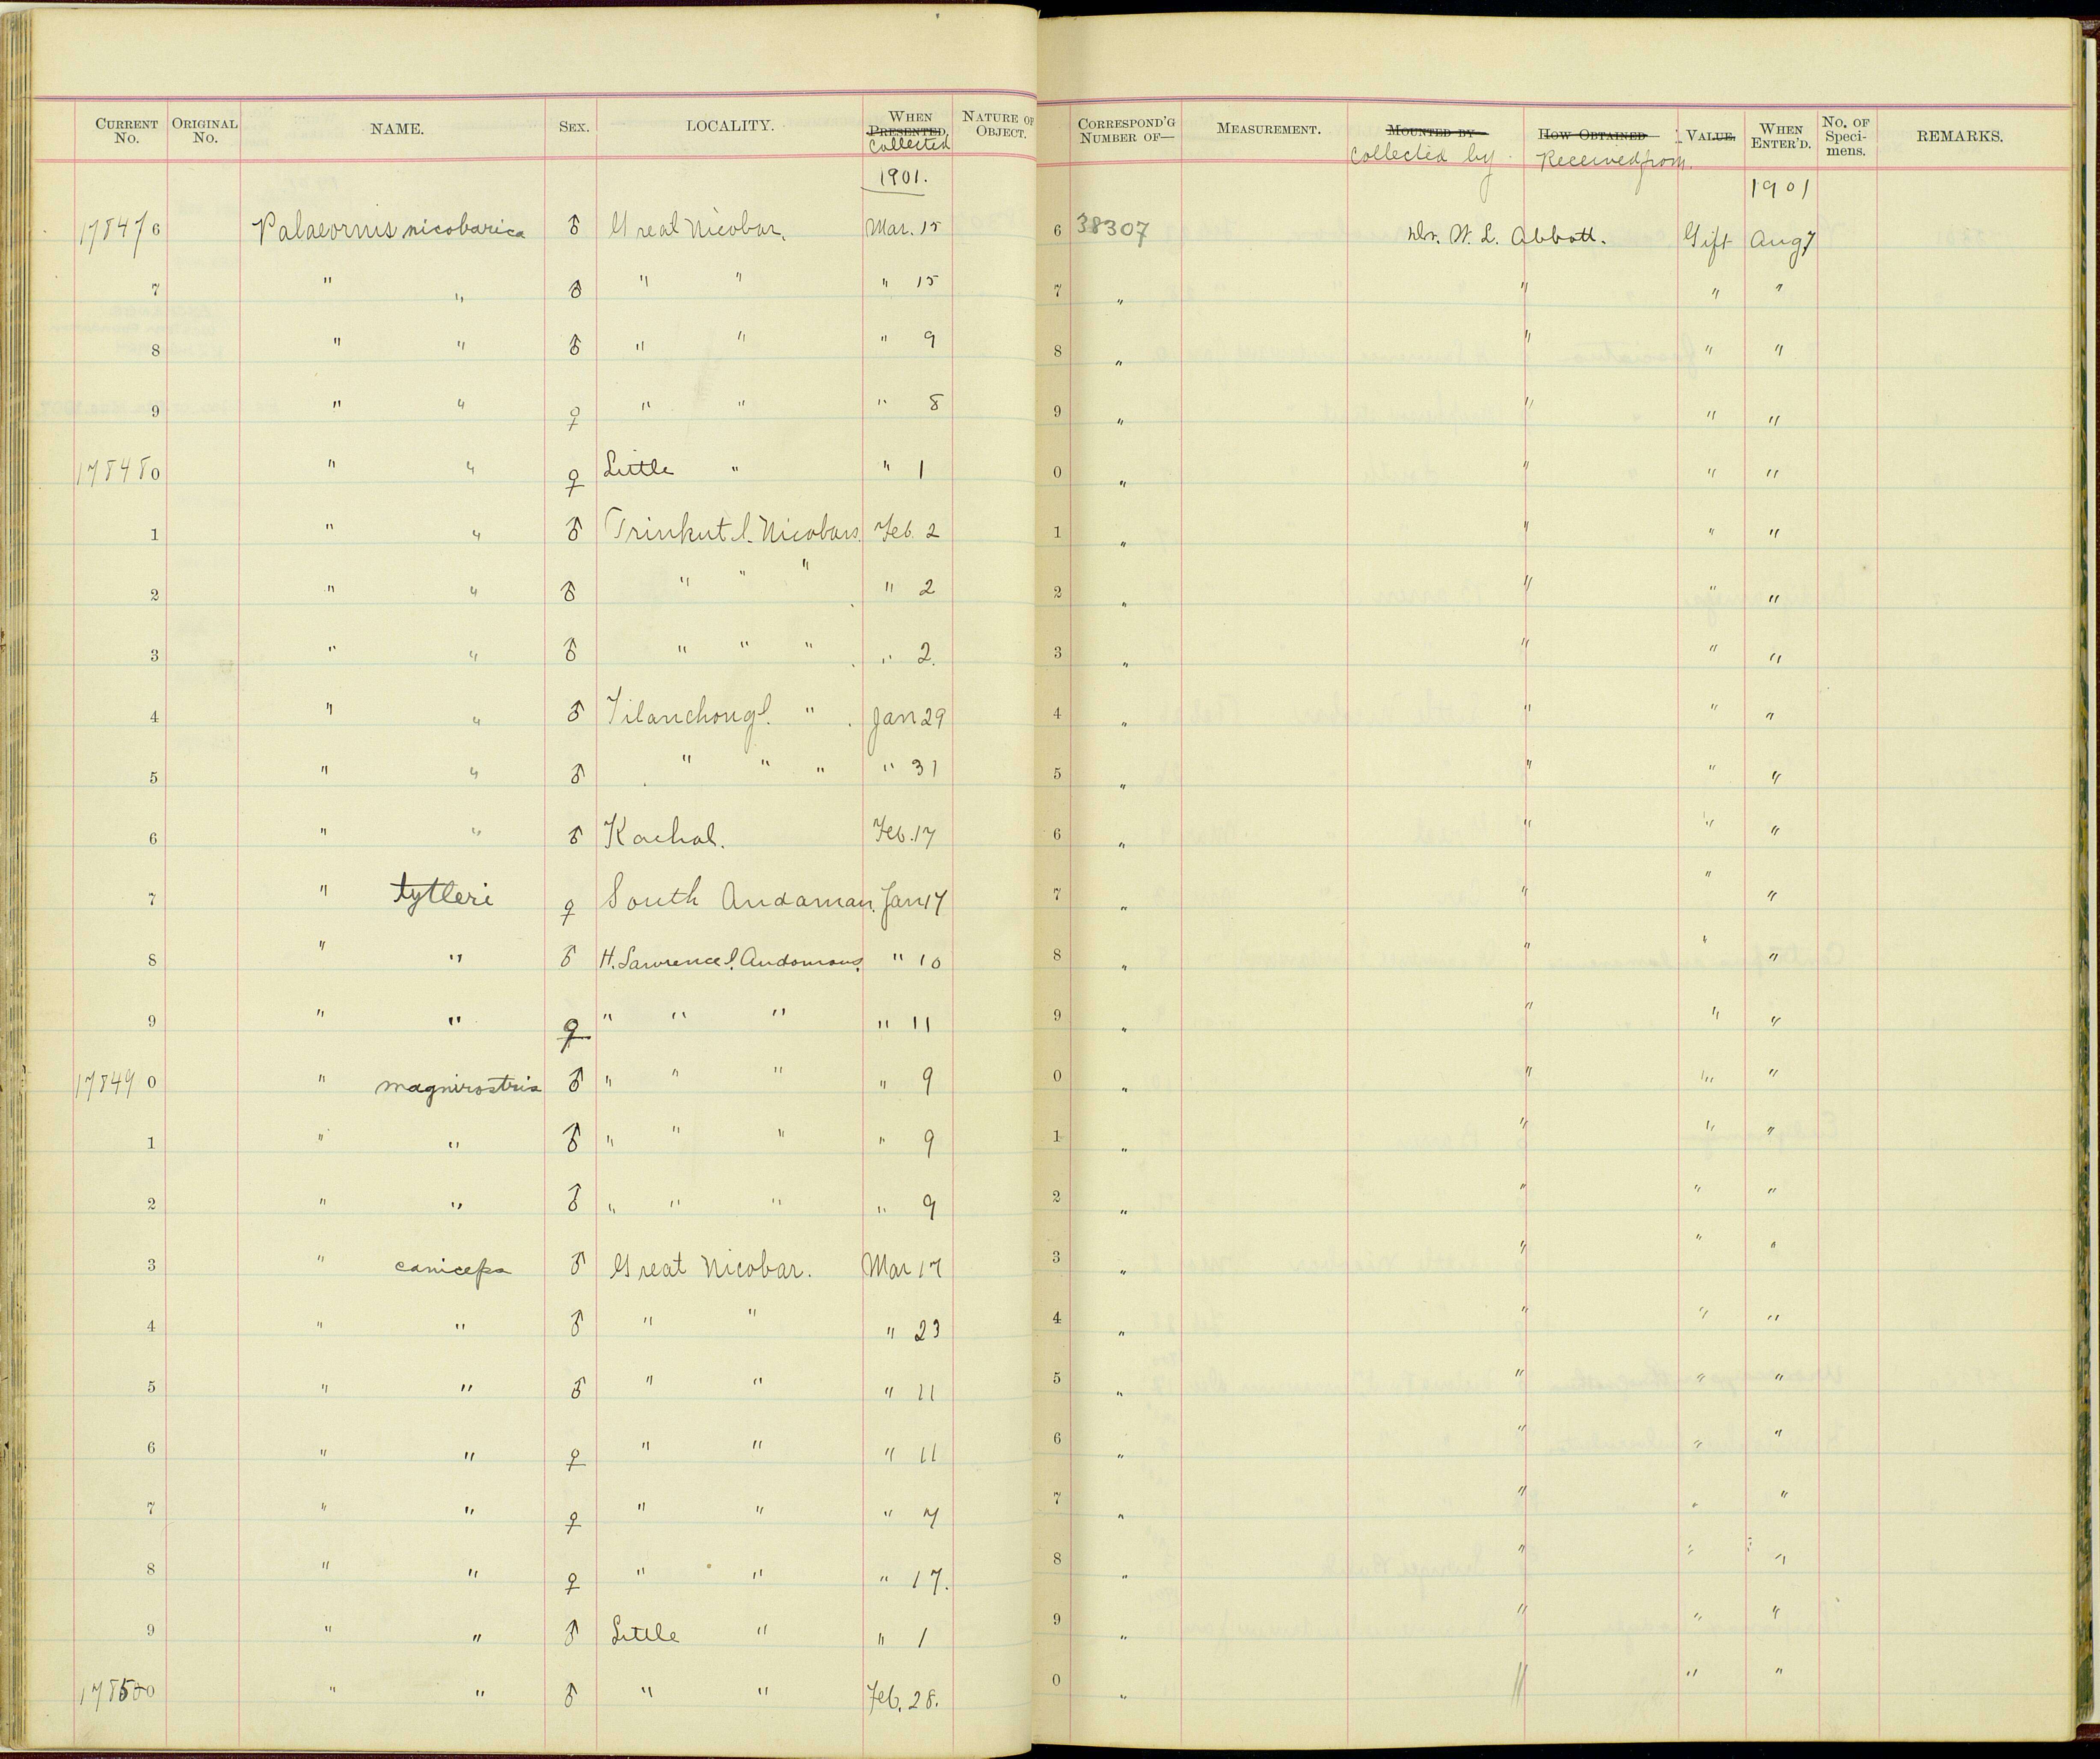 CURRENT No. ORIGINAL No. NAME. SEX. LOCALITY. WHEN PRESENTED, Collected NATURE OF OBJECT. CORRESPOND'G NUMBER OF— MEASUREMENT. MOUNTED BY Collected by HOW OBTAINED Received from VALUE. WHEN ENTER'D. No. OF Specimens. REMARKS.
1901. 1901
178476 Palaeornis nicobarica ♂ Great Nicobar. Mar. 15 6 38307 Dr. W. L. Abbott. Gift Aug 7
7 " " ♂ " " " 15 7 " " " "
8 " " ♂ " " " 9 8 " " " "
9 " " ♀ " " " 8 9 " " " "
178480 " " ♀ Little " " 1 0 " " " "
1 " " ♂ Trinkut I. Nicobars. Feb. 2 1 " " " "
2 " " ♂ " " " " 2 2 " " " "
3 " " ♂ " " " " 2. 3 " " " "
4 " " ♂ Tilanchong I. " Jan 29 4 " " " "
5 " " ♂ " " " " 31 5 " " " "
6 " " ♂ Kachal. Feb. 17 6 " " " "
7 " tytleri ♀ South Andaman. Jan 17 7 " " " "
8 " " ♂ H. Lawrence I. Andamans. " 10 8 " " " "
9 " " ♀ " " " " 11 9 " " " "
178490 " magnirostris ♂ " " " " 9 0 " " " "
1 " " ♂ " " " " 9 1 " " " "
2 " " ♂ " " " " 9 2 " " " "
3 " caniceps ♂ Great Nicobar. Mar 17 3 " " " "
4 " " ♂ " " " 23 4 " " " "
5 " " ♂ " " " 11 5 " " " "
6 " " ♀ " " " 11 6 " " " "
7 " " ♀ " " " 7 7 " " " "
8 " " ♀ " " " 17. 8 " " " "
9 " " ♂ Little " " 1 9 " " " "
178500 " " ♂ " " Feb. 28. 0 " " " "